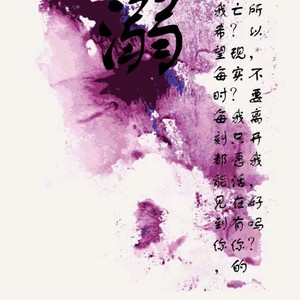 溺
我希望每时每刻都能见到你，
亡？现实？我只愿活在有你的
所以，不要离开我，好吗？